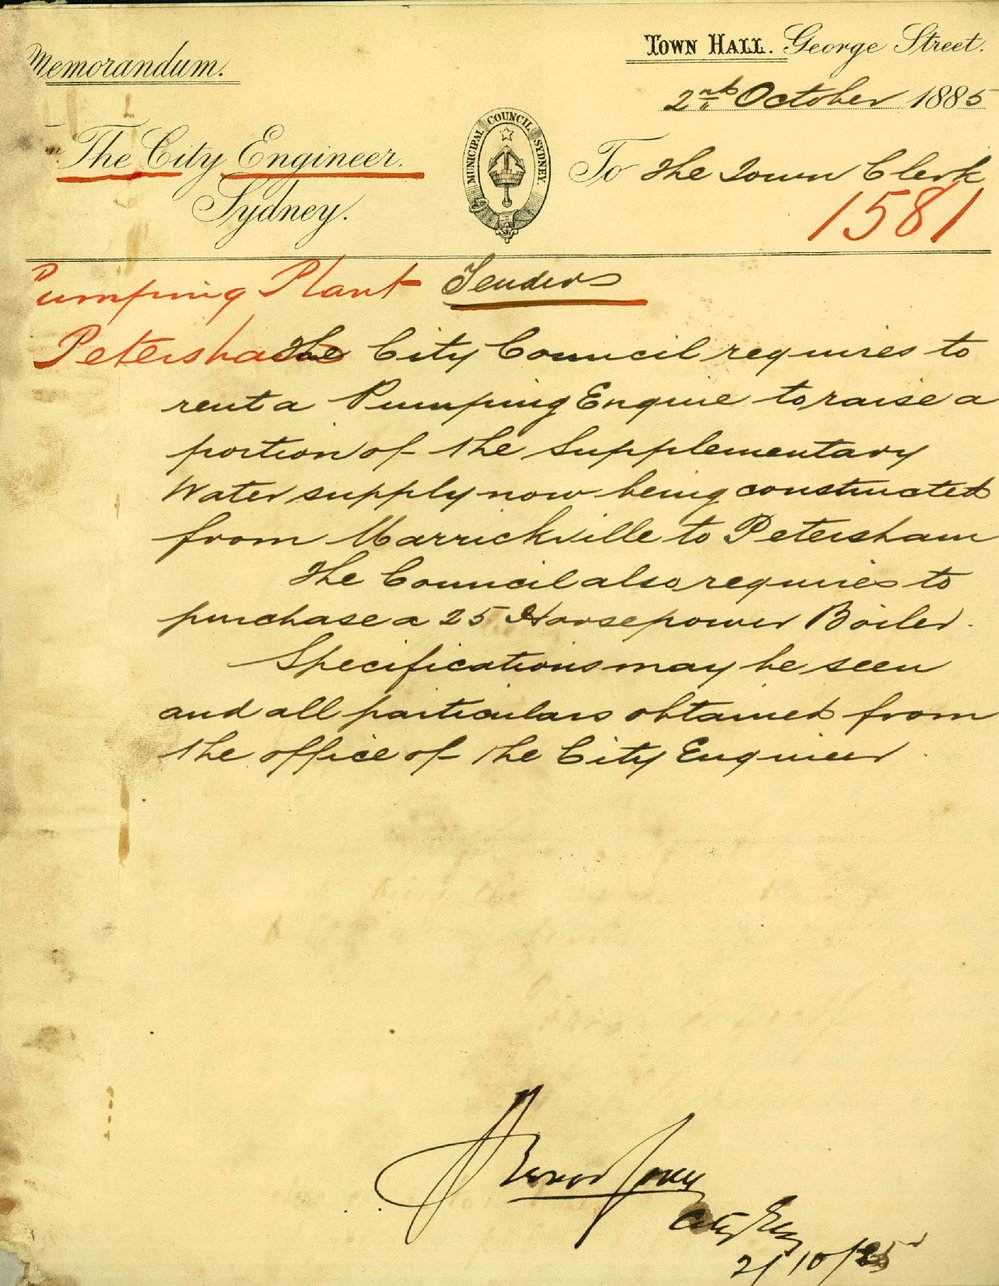 Memorandum.
TOWN HALL. George Street.
2nd October 1885
The City Engineer.
Sydney.
MUNICIPAL COUNCIL SYDNEY.
To The Town Clerk
1581
Pumping Plant Tenders
Petersham
The City Council requires to
rent a Pumping Engine to raise a
portion of the Supplementary
Water supply now being constructed
from Marrickville to Petersham
The Council also requires to
purchase a 25 Horsepower Boiler.
Specifications may be seen
and all particulars obtained from
the office of the City Engineer.
City Eng
2/10/85